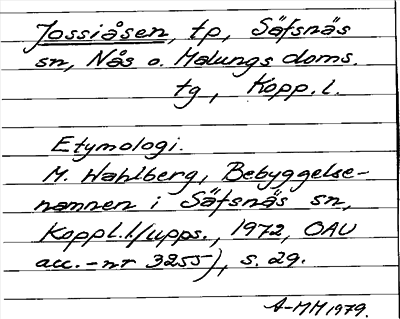 Jossiåsen, tp, Säfsnäs
sn, Nås o. Malungs doms.
tg, Kopp. l.
Etymologi.
M. Wahlberg, Bebyggelse-
namnen i Säfsnäs sn,
Koppl. l/upps., 1972, OAU
acc.-nr 3255), s. 29.
A-MM 1979.